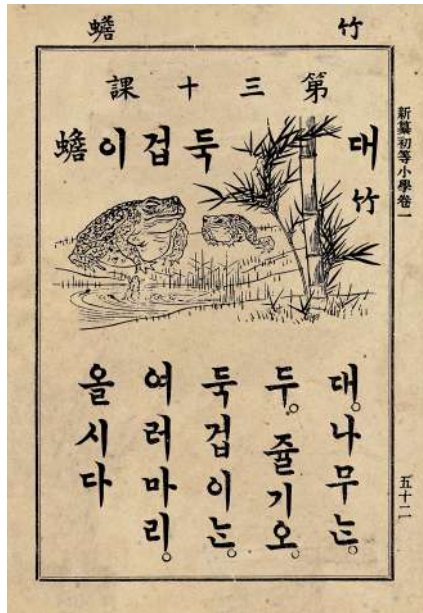 竹
蟾
新纂初等小學卷一
五十二
第三十課
대 竹
둑겁이 蟾
대。나무는。
두。쥴기오。
둑겁이는。
여러마리。
올시다